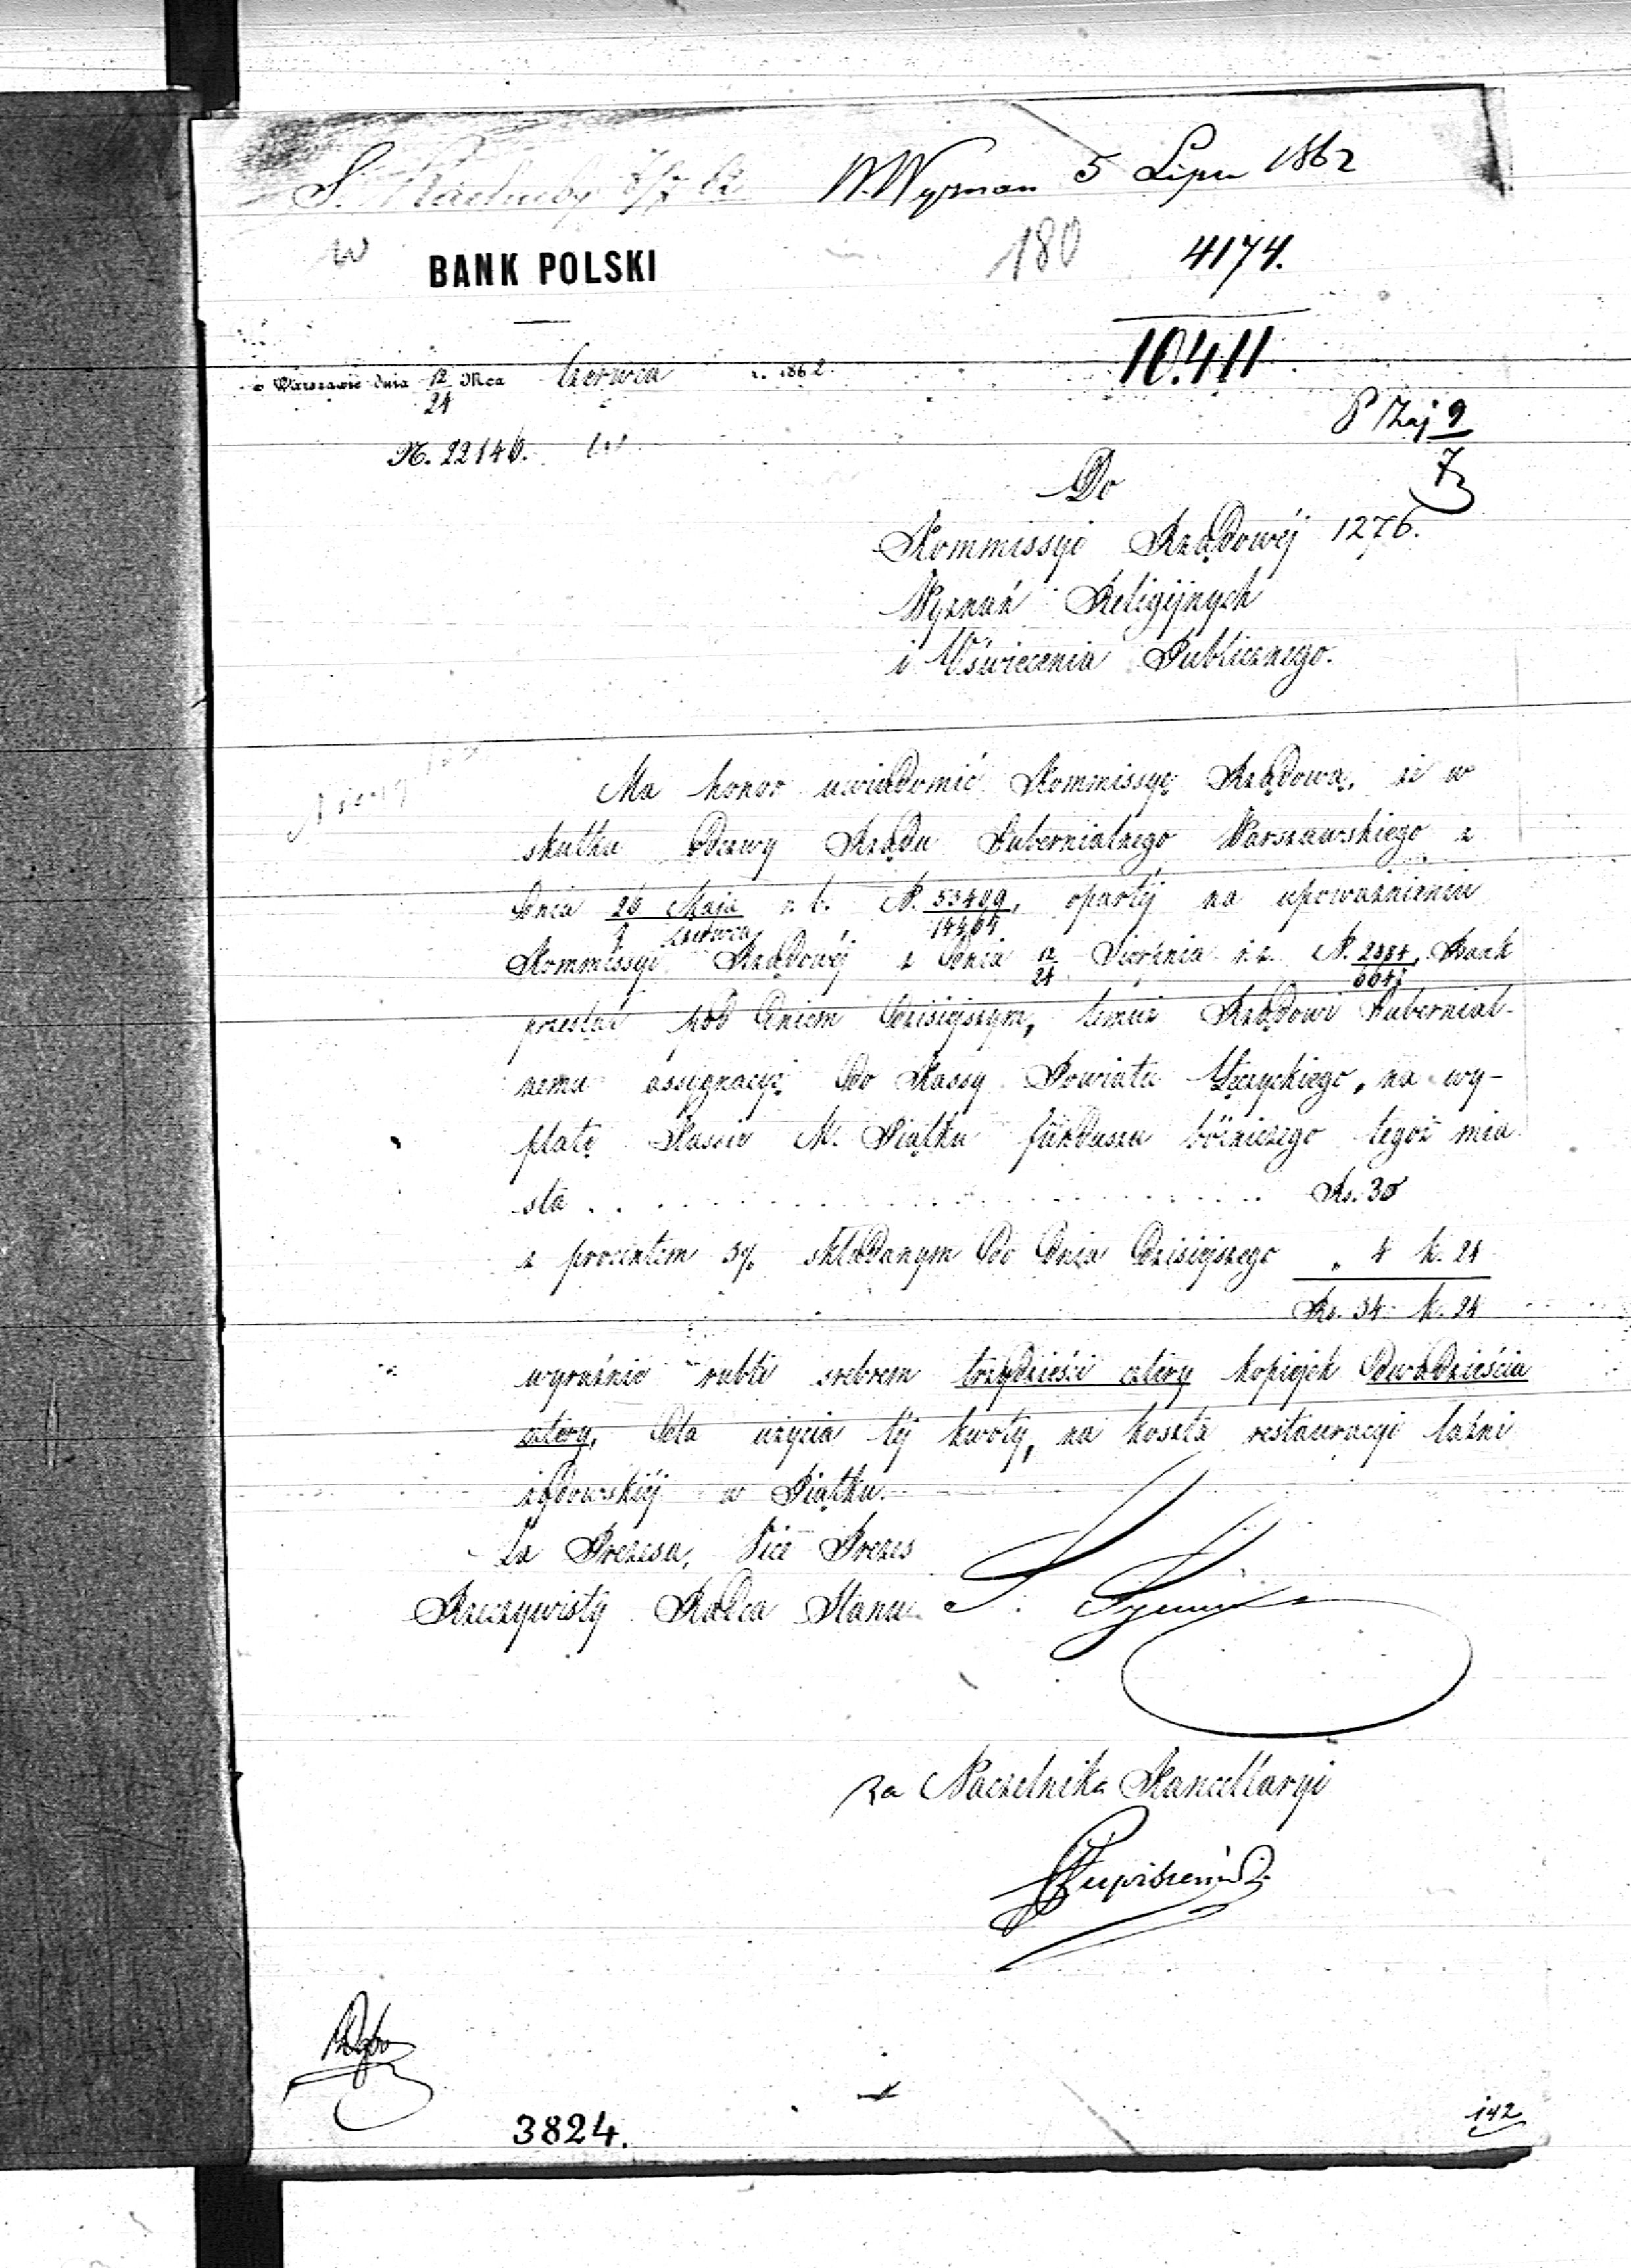 W. Wyznań 5 Lipca 1862
180 4174.
BANK POLSKI
10.411
w Warszawie dnia 12/24 Mca Czerwca r. 1862.
N. 22140.
9/7
Do
Kommissyi Rządowéj 1276.
Wyznań Religijnych
i Oświecenia Publicznego.
Ma honor uwiadomić Kommissyę Rządową, że w
skutku Odezwy Rządu Gubernialnego Warszawskiego z
dnia 26 Maja / 7 Czerwca r. b. N. 53409/14404, opartéj na upoważnieniu
Kommissyi Rządowéj z dnia 12/24 Sierpnia r. z. N. 2384/6647, Bank
przesłał pod dniem dzisiejszym, temuż Rządowi Gubernial-
nemu assygnacyę do Kassy Powiatu Łęczyckiego, na wy-
płatę Kassie M. Piątku funduszu bóżniczego tegoż mia
sta . . . . . . . . . . Rs. 30
z procentem 3% składanym do dnia dzisiejszego „ 4 k. 24
Rs. 34 k. 24
wyraźnie rubli srebrem trzydzieści cztery kopiejek dwadzieścia
cztery, dla użycia téj kwoty, na koszta restauracyi łaźni
żydowskiéj w Piątku.
Za Prezesa, Vice Prezes
Rzeczywisty Radca Stanu
za Naczelnika Kancellaryi
3824.
142